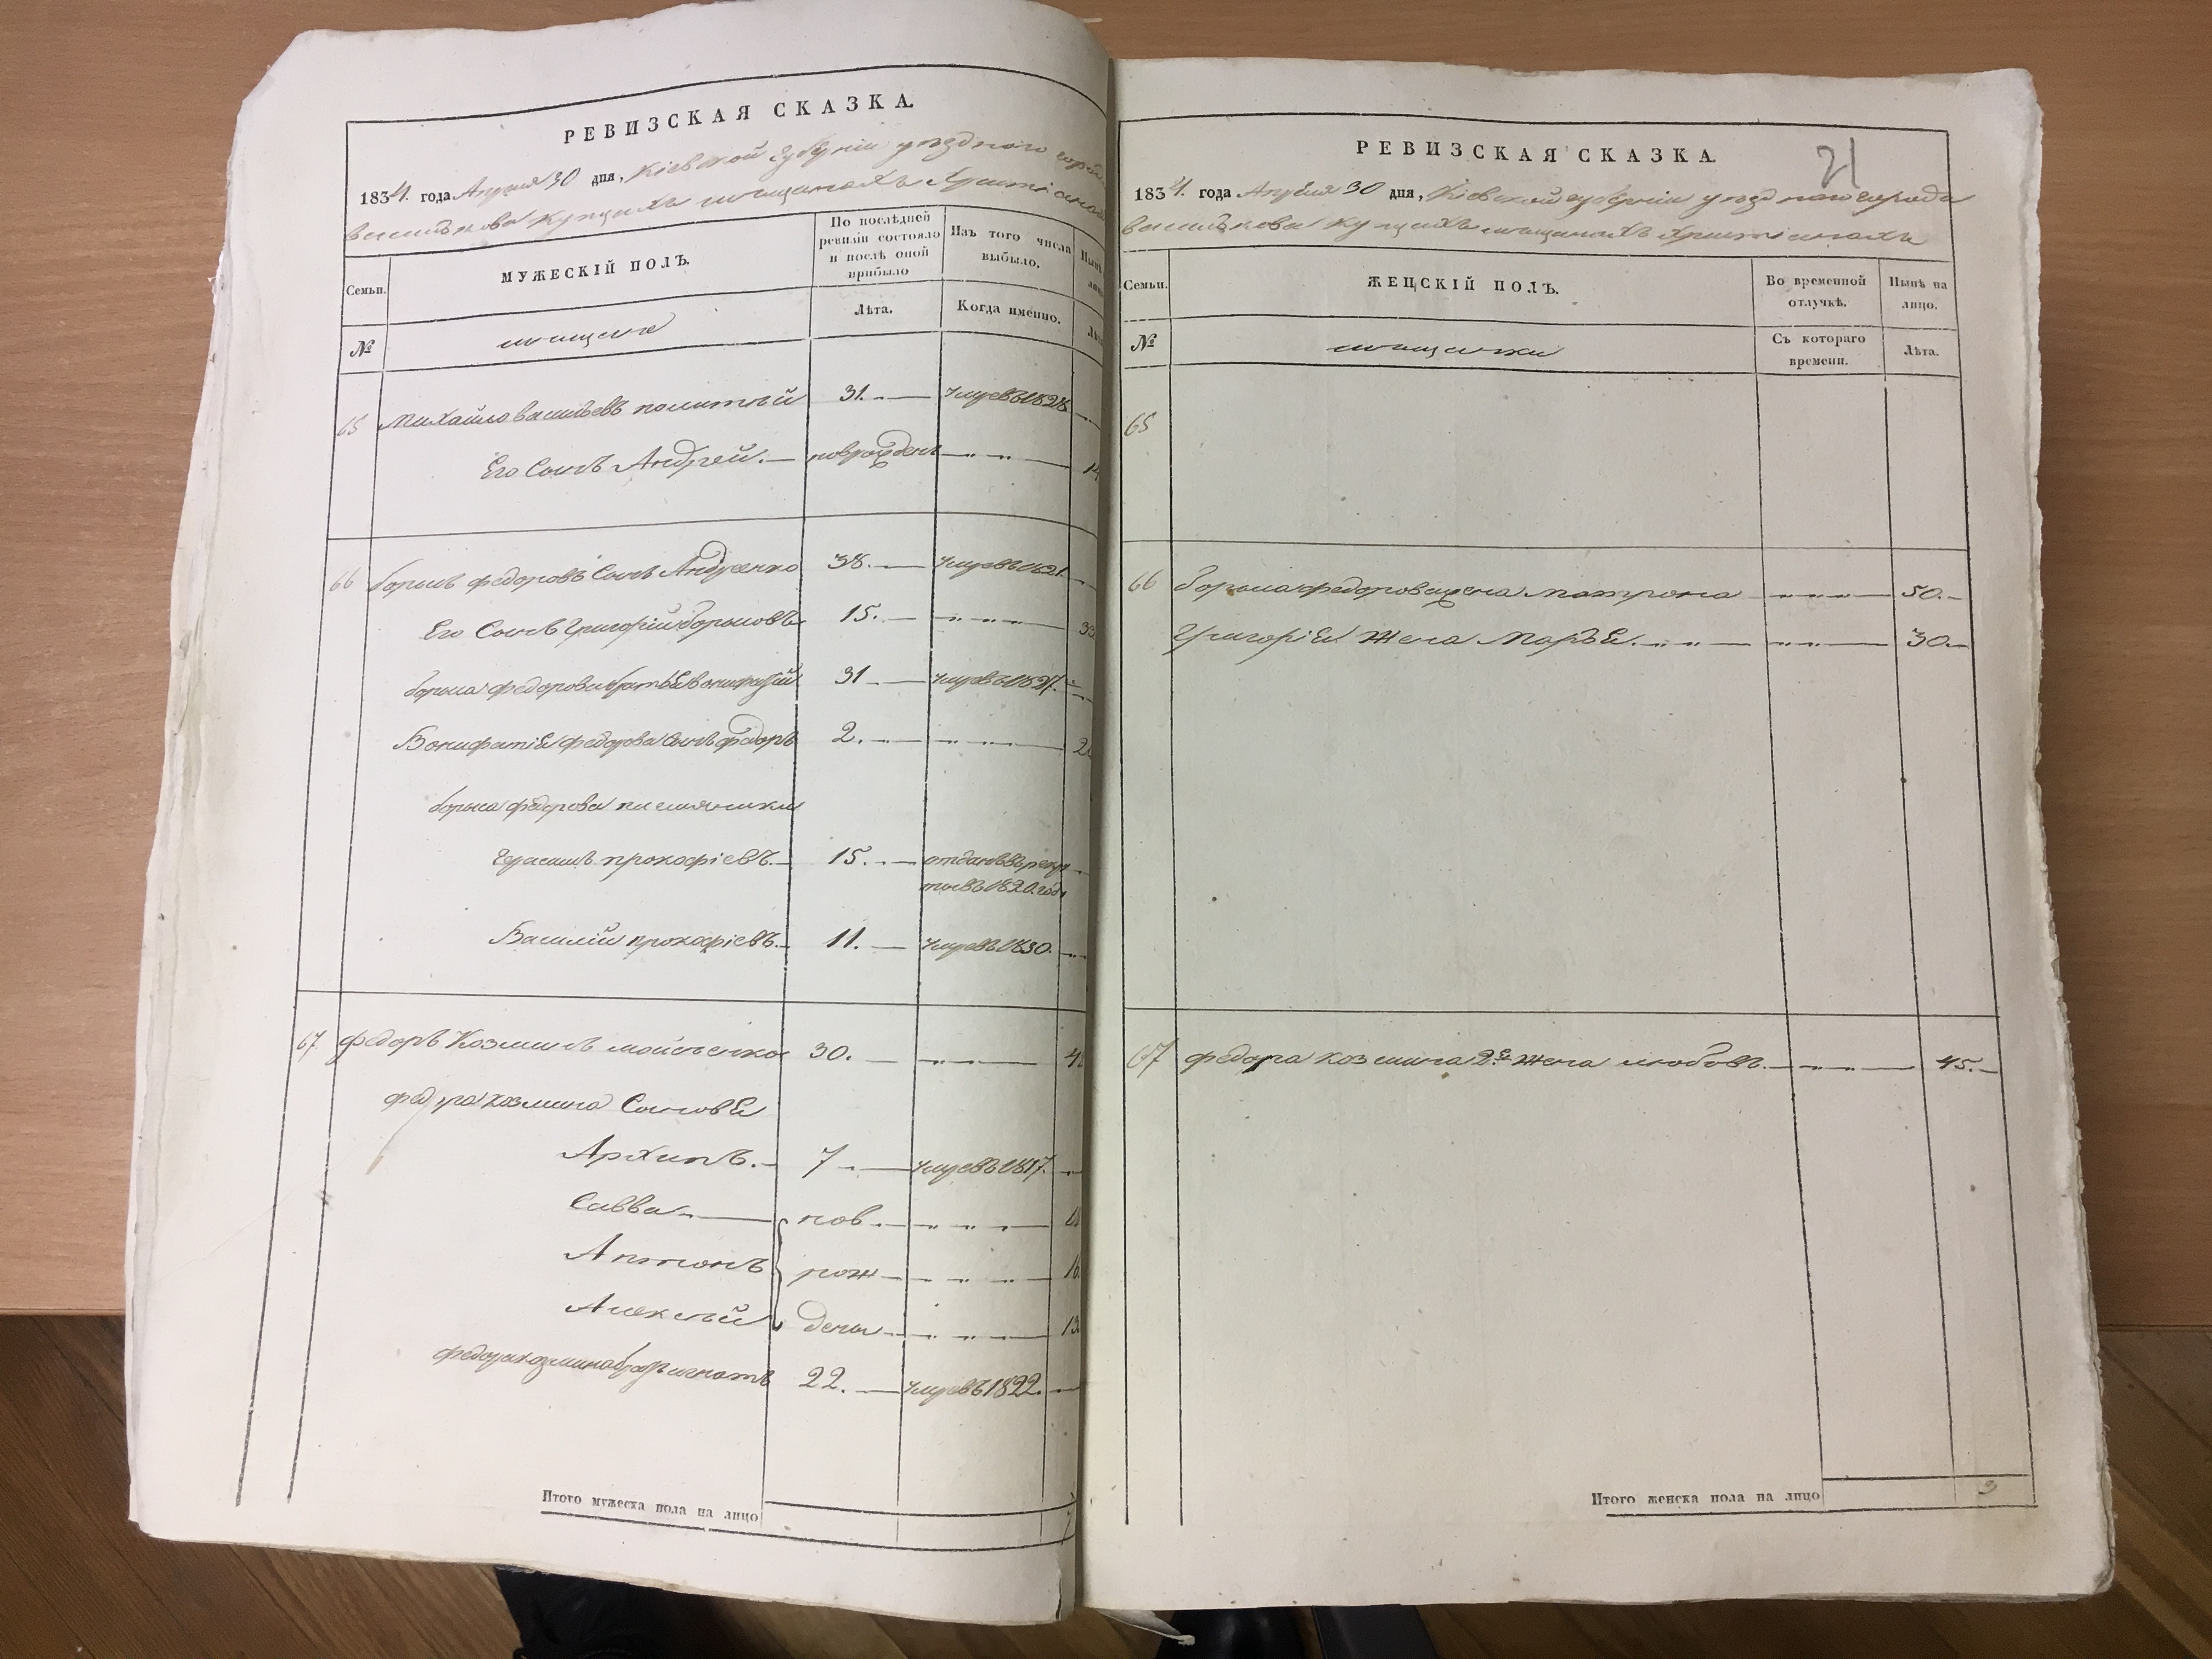 РЕВИЗСКАЯ СКАЗКА.
1834. года Апреля 30 дня, Кіевской губерніи уезднаго города
василькова купцахъ мещанахъ христианахъ
Семьи.
МУЖЕСКІЙ ПОЛЪ.
По послѣдней ревизіи состояло и послѣ оной прибыло
Изъ того числа выбыло.
№
мещане
Лѣта.
Когда именно.
65 Михайло васильевъ 31. умре въ 1828
Его Сынъ Андрей. новорожденъ 14
66 борисъ федоровъ Сынъ Андреенко 38. умре въ 1821.
Его Сынъ Григорий борисовъ 15.
бориса федорова братъ Вонифатий 31 умре въ 1827.
Вонифатия федорова Сынъ федоръ 2.
бориса федорова племянники
Герасимъ прокофіевъ. 15. отданъ въ рекру
ты въ 1820. годе
Василий прокофіевъ. 11. умре въ 1830.
67 федоръ Козминъ мойсеенко 30.
федора козмина Сыновя
Архипъ. 7 умре въ 1817.
Савва нов
Антонъ рож 16.
Алексѣй дены
федора козмина братъ игнатъ 22. умре въ 1822.
Итого мужеска пола на лицо
РЕВИЗСКАЯ СКАЗКА.
21
1834. года Апреля 30 дня, Кіевской губерніи уезднаго города
василькова купцахъ мещанахъ христианахъ
Семьи.
ЖЕНСКІЙ ПОЛЪ.
Во временной отлучкѣ.
Нынѣ на лицо.
№
мещанки
Съ котораго времени.
Лѣта.
65
66 бориса федорова жена матрона 50.
Григорія Жена Марья. 30.
67 федора козмина 2я жена любовъ. 45.
Итого женска пола на лицо 3